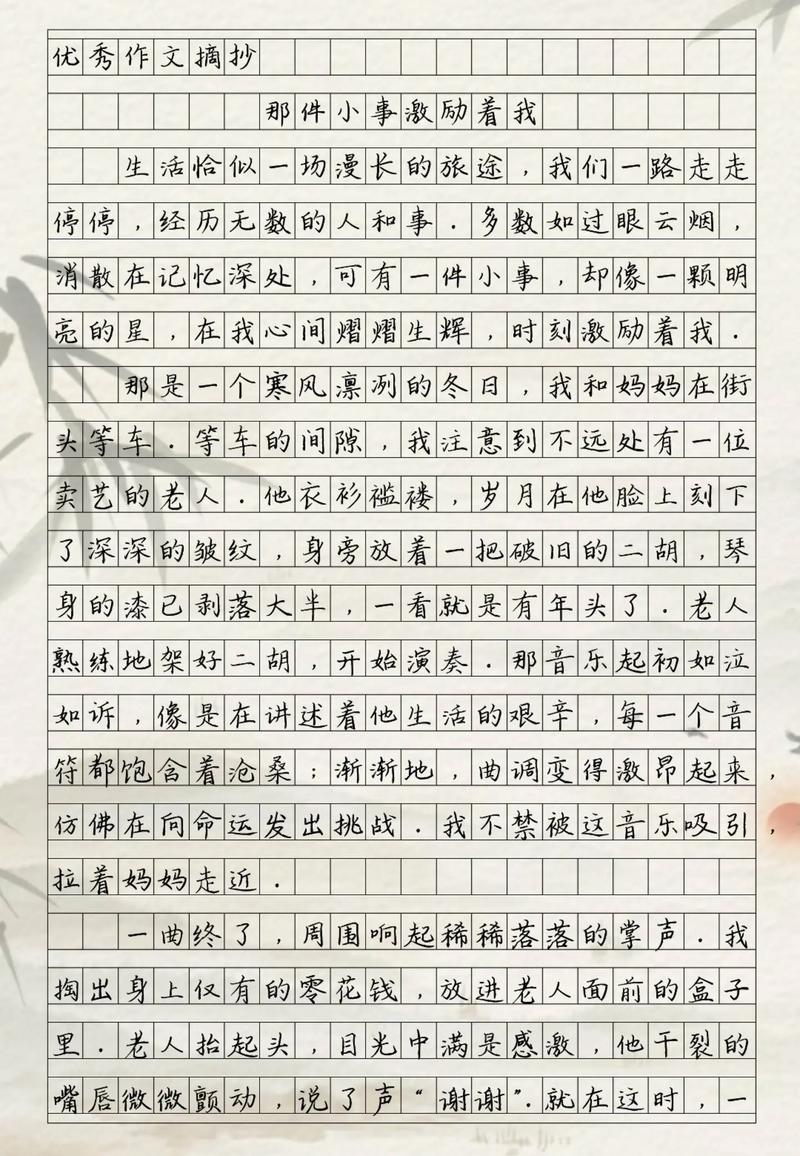 优秀作文摘抄
那件小事激励着我
生活恰似一场漫长的旅途，我们一路走走
停停，经历无数的人和事．多数如过眼云烟，
消散在记忆深处，可有一件小事，却像一颗明
亮的星，在我心间熠熠生辉，时刻激励着我．
那是一个寒风凛冽的冬日，我和妈妈在街
头等车．等车的间隙，我注意到不远处有一位
卖艺的老人．他衣衫褴褛，岁月在他脸上刻下
了深深的皱纹，身旁放着一把破旧的二胡，琴
身的漆已剥落大半，一看就是有年头了．老人
熟练地架好二胡，开始演奏．那音乐起初如泣
如诉，像是在讲述着他生活的艰辛，每一个音
符都饱含着沧桑；渐渐地，曲调变得激昂起来，
仿佛在向命运发出挑战．我不禁被这音乐吸引，
拉着妈妈走近．
一曲终了，周围响起稀稀落落的掌声．我
掏出身上仅有的零花钱，放进老人面前的盒子
里．老人抬起头，目光中满是感激，他干裂的
嘴唇微微颤动，说了声“谢谢”．就在这时，一